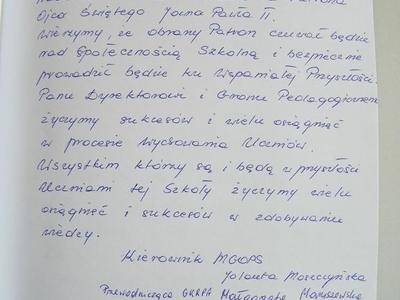 Ojca Świętego Jana Pawła II.
Wierzymy, że obrany Patron czuwał będzie
nad Społecznością Szkolną i bezpiecznie
prowadzić będzie ku wspaniałej Przyszłości.
Panu Dyrektorowi i Gronu Pedagogicznemu
życzymy sukcesów i wielu osiągnięć
w procesie wychowania Uczniów.
Wszystkim którzy są i będą w przyszłości
Uczniami tej Szkoły życzymy wielu
osiągnięć i sukcesów w zdobywaniu
wiedzy.
Kierownik MGOPS
Jolanta Moszczyńska
Przewodnicząca GKRPA Małgorzata